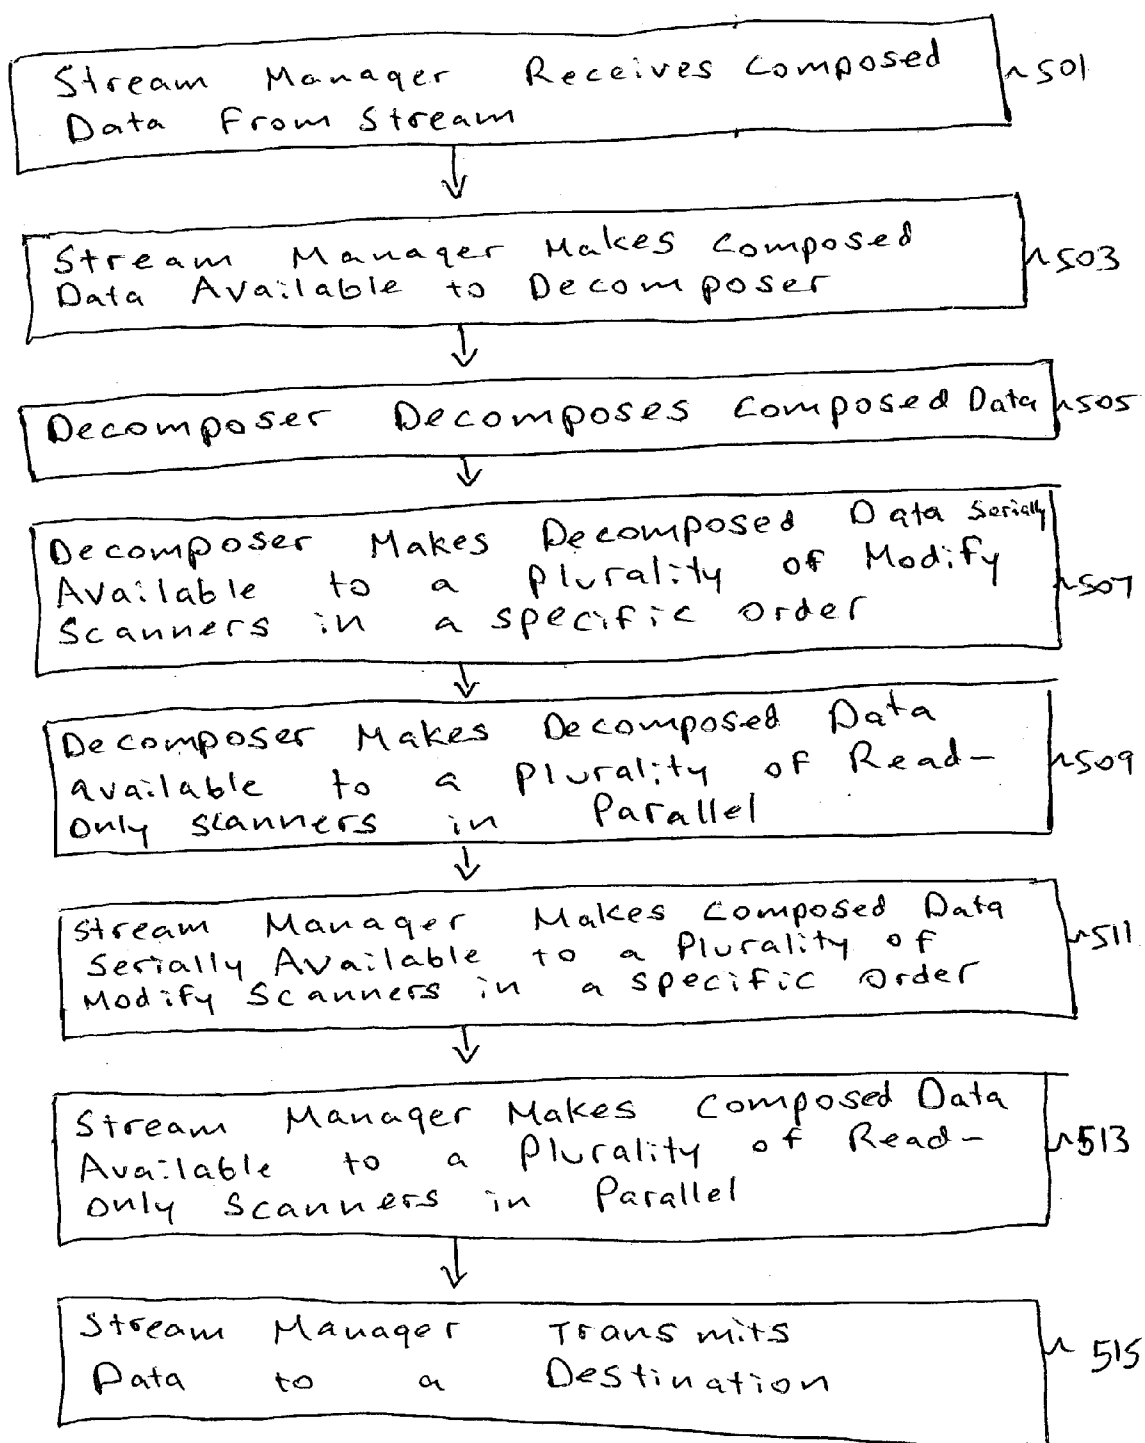 Stream Manager Receives Composed
Data From Stream
501
Stream Manager Makes Composed
Data Available to Decomposer
503
Decomposer Decomposes Composed Data
505
Decomposer Makes Decomposed Data Serially
Available to a Plurality of Modify
Scanners in a specific order
507
Decomposer Makes Decomposed Data
available to a Plurality of Read-
only scanners in Parallel
509
Stream Manager Makes Composed Data
Serially Available to a Plurality of
Modify Scanners in a specific order
511
Stream Manager Makes Composed Data
Available to a Plurality of Read-
only Scanners in Parallel
513
Stream Manager Transmits
Data to a Destination
515